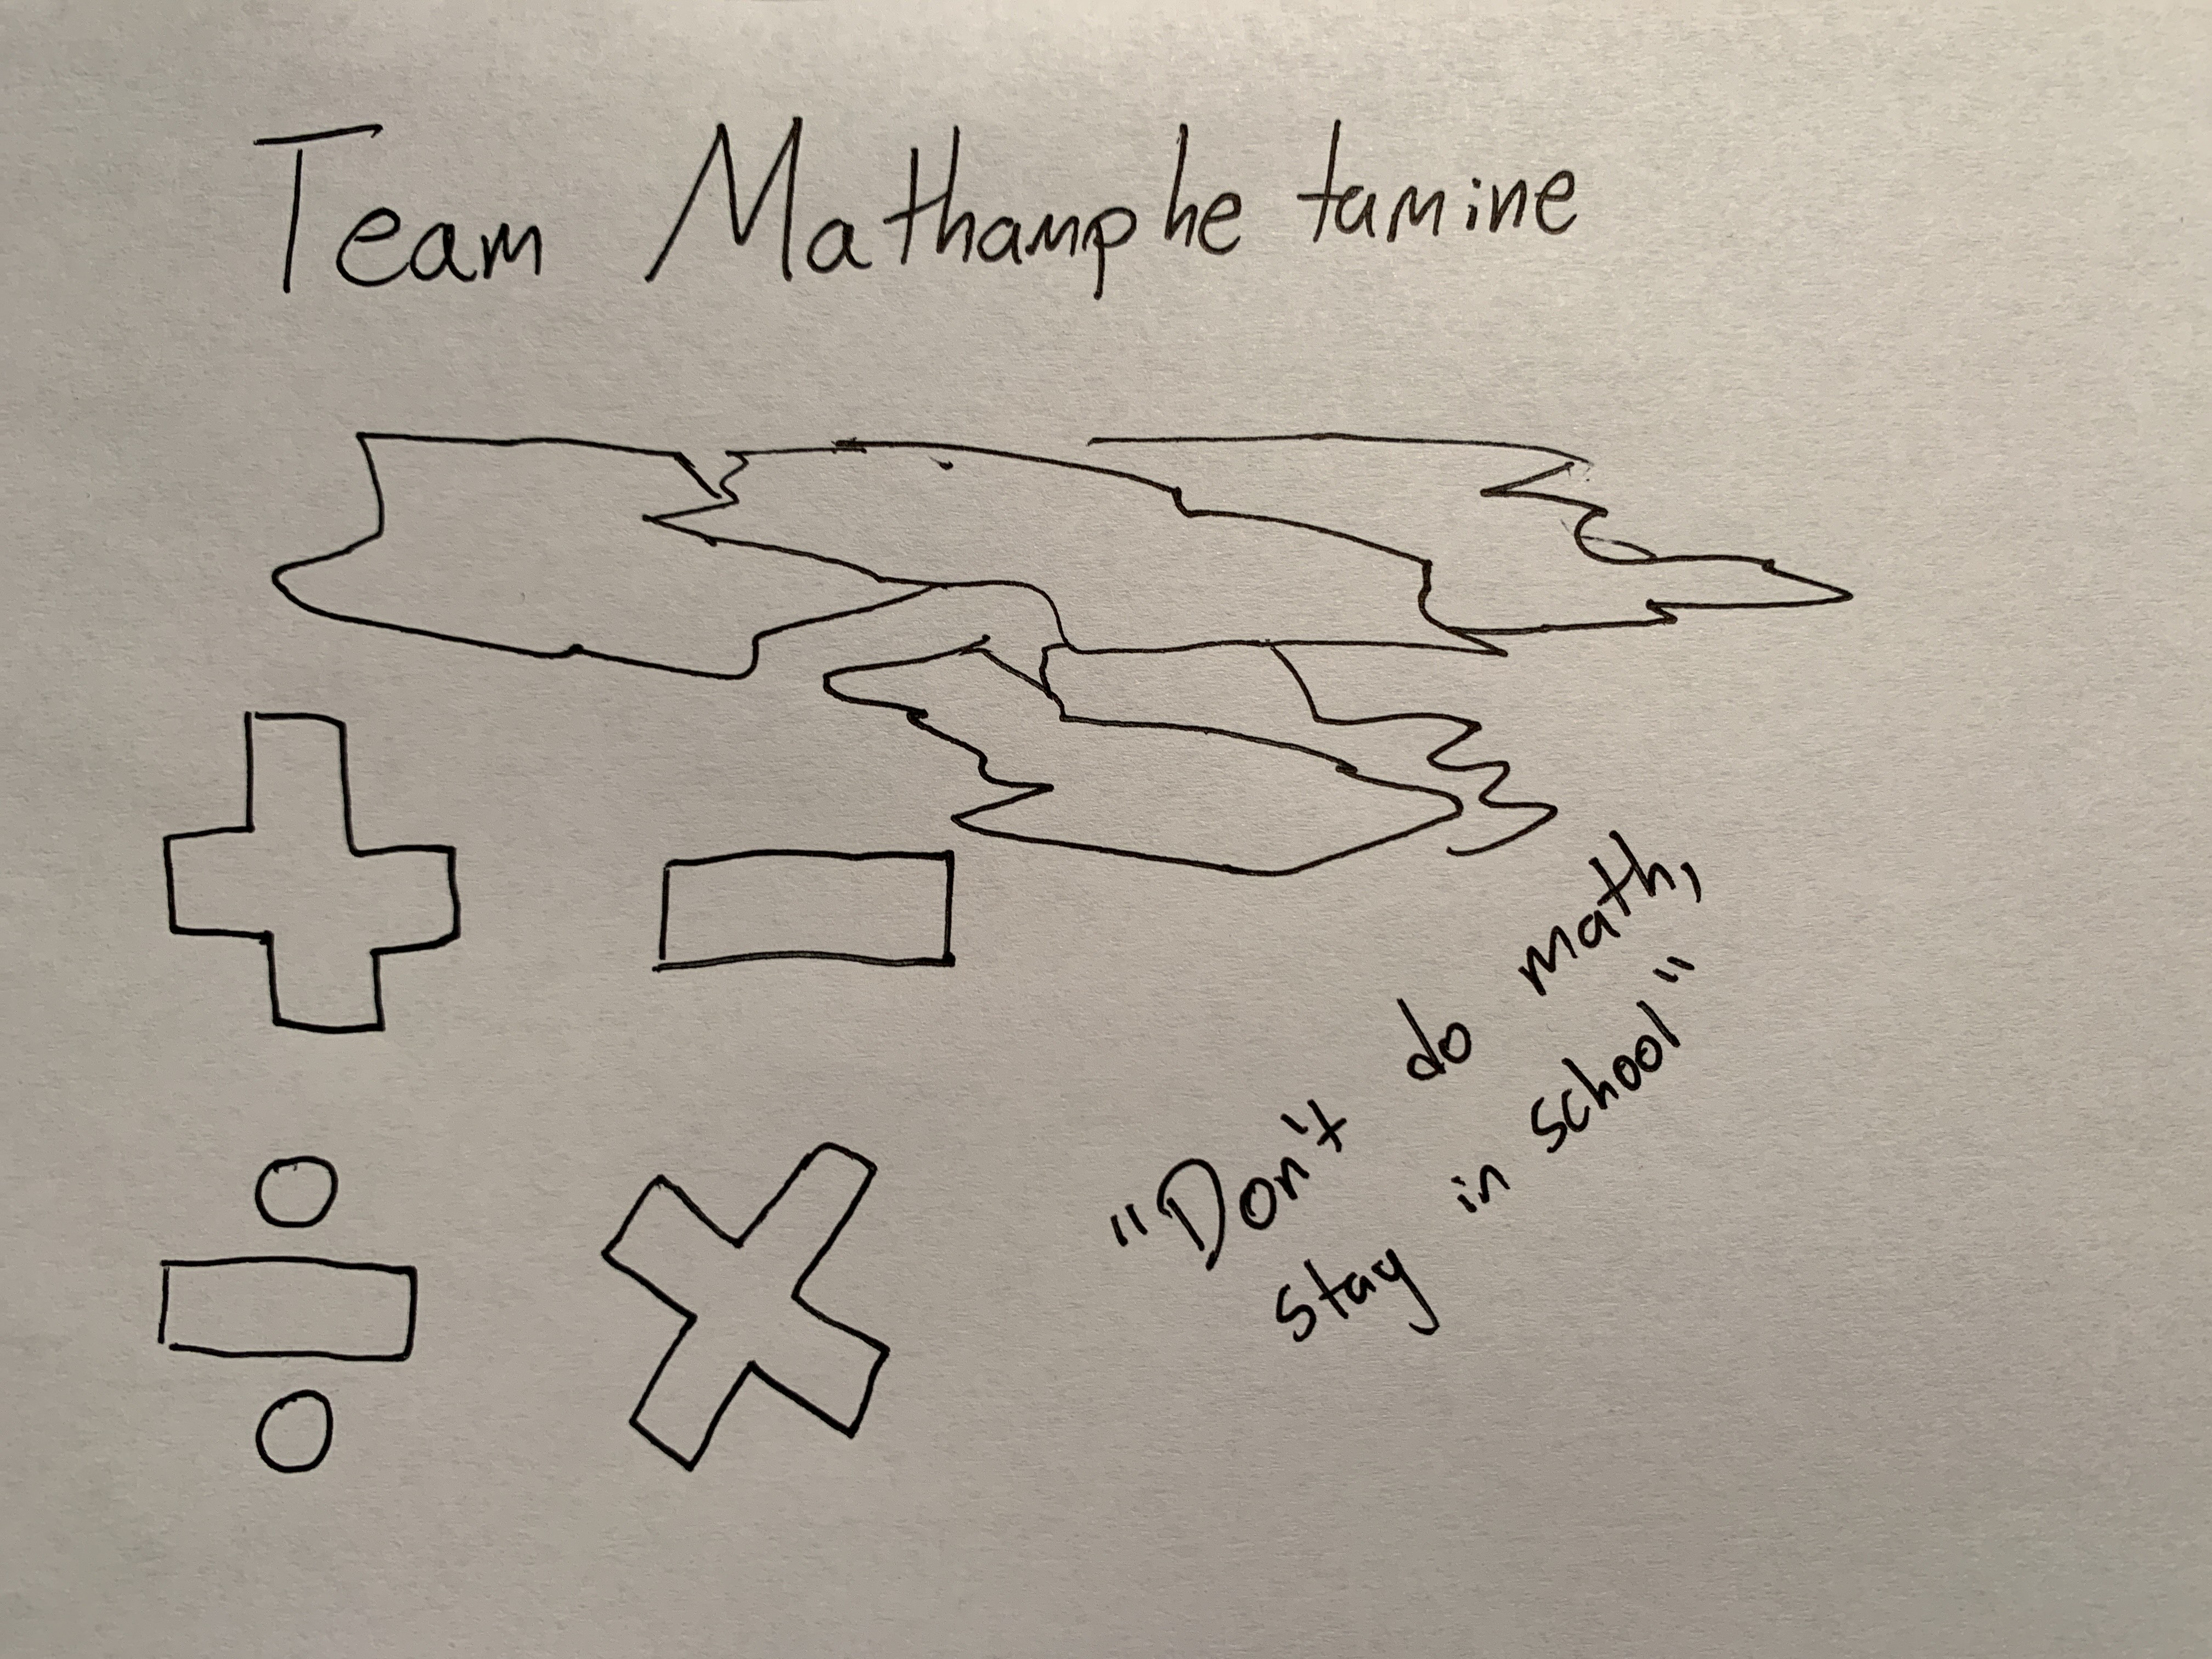 Team Mathamphetamine
"Don't do math,
stay in school"